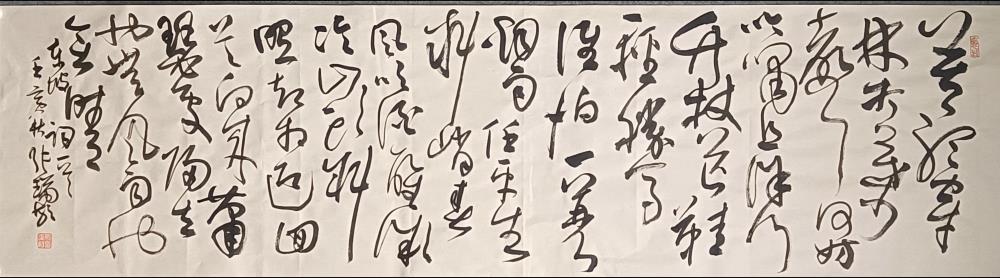 莫听穿
林打葉
聲何妨
吟嘯且徐行
竹杖芒鞋
輕勝馬
谁怕一蓑
烟雨任平生
料峭春
風吹酒醒微
冷山头斜
照却相迎回
首向来蕭
瑟處归去
也無风雨也
無晴
东坡词一首
壬寅秋张瑞